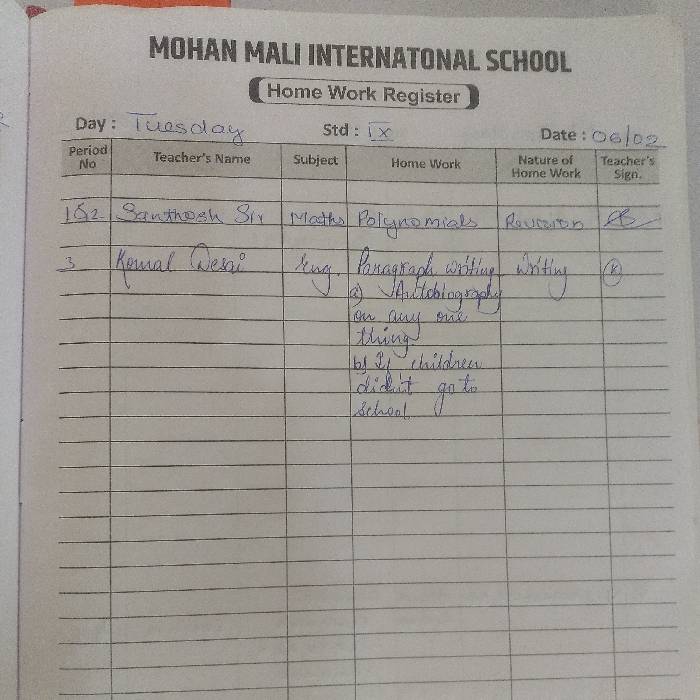 MOHAN MALI INTERNATONAL SCHOOL
Home Work Register
Day : Tuesday Std : IX Date : 06/02
Period No Teacher's Name Subject Home Work Nature of Home Work Teacher's Sign.
1&2 Santhosh Sir Maths Polynomials Revision
3 Komal Desai Eng. Paragraph writing writing
a) Autobiography
on any one
thing.
b) If children
didn't go to
school